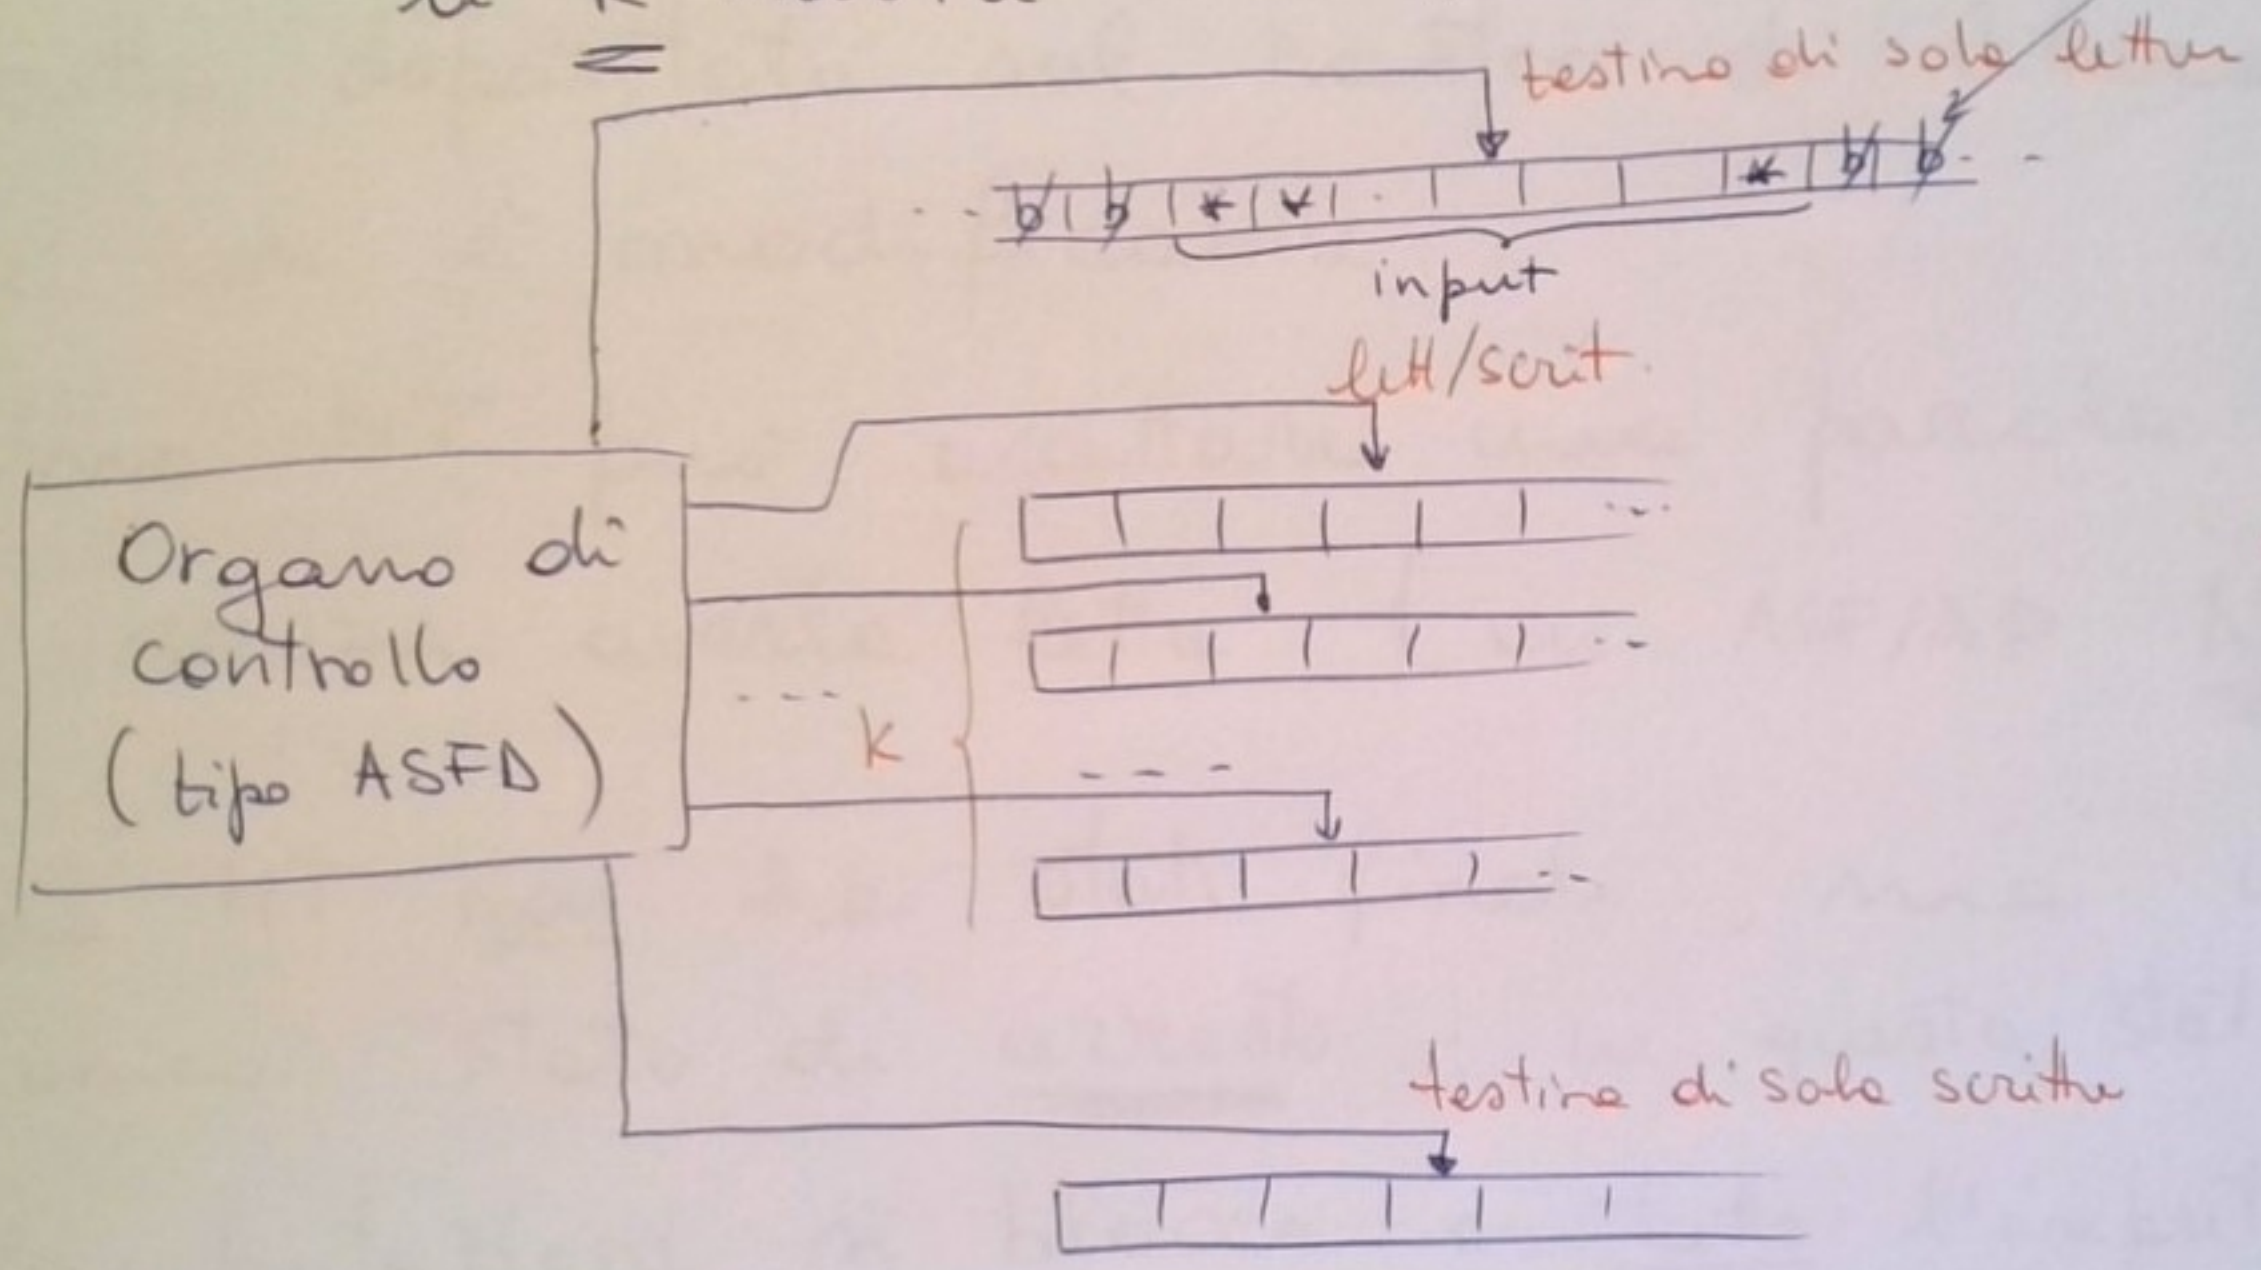 testina di sola lettura
.. ƀ ƀ * * . * ƀ ƀ . -
input
lett/scrit.
Organo di
controllo
(tipo ASFD)
k
testina di sola scrittura